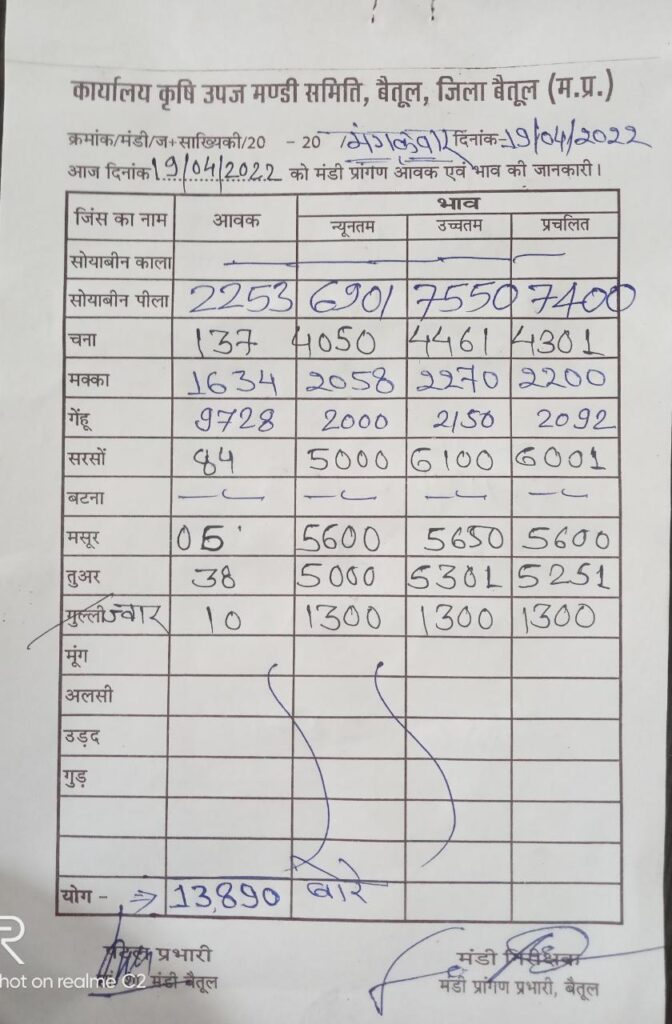 कार्यालय कृषि उपज मण्डी समिति, बैतूल, जिला बैतूल (म.प्र.)
क्रमांक/मंडी/ज+साख्यिकी/20 - 20 मंगलवार दिनांक-19/04/2022
आज दिनांक 19/04/2022 को मंडी प्रांगण आवक एवं भाव की जानकारी।
जिंस का नाम आवक भाव
न्यूनतम उच्चतम प्रचलित
सोयाबीन काला — — — —
सोयाबीन पीला 2253 6901 7550 7400
चना 137 4050 4461 4301
मक्का 1634 2058 2270 2200
गेंहू 9728 2000 2150 2092
सरसों 84 5000 6100 6001
बटना — — — —
मसूर 05 5600 5650 5600
तुअर 38 5000 5301 5251
मुल्ली ज्वार 10 1300 1300 1300
मूंग
अलसी
उड़द
गुड़
योग - ⇒ 13,890 बोरे
प्रभारी मंडी निरीक्षक
मंडी बैतूल मंडी प्रांगण प्रभारी, बैतूल
R
hot on realme C2